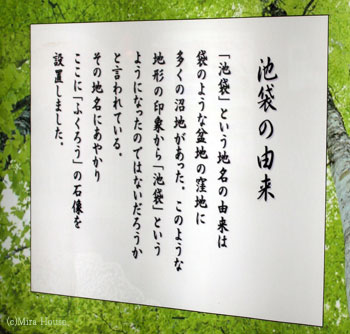 池袋の由来
「池袋」という地名の由来は
袋のような盆地の窪地に
多くの沼地があった。このような
地形の印象から「池袋」という
ようになったのではないだろうか
と言われている。
その地名にあやかり
ここに「ふくろう」の石像を
設置しました。
(c)Mira House